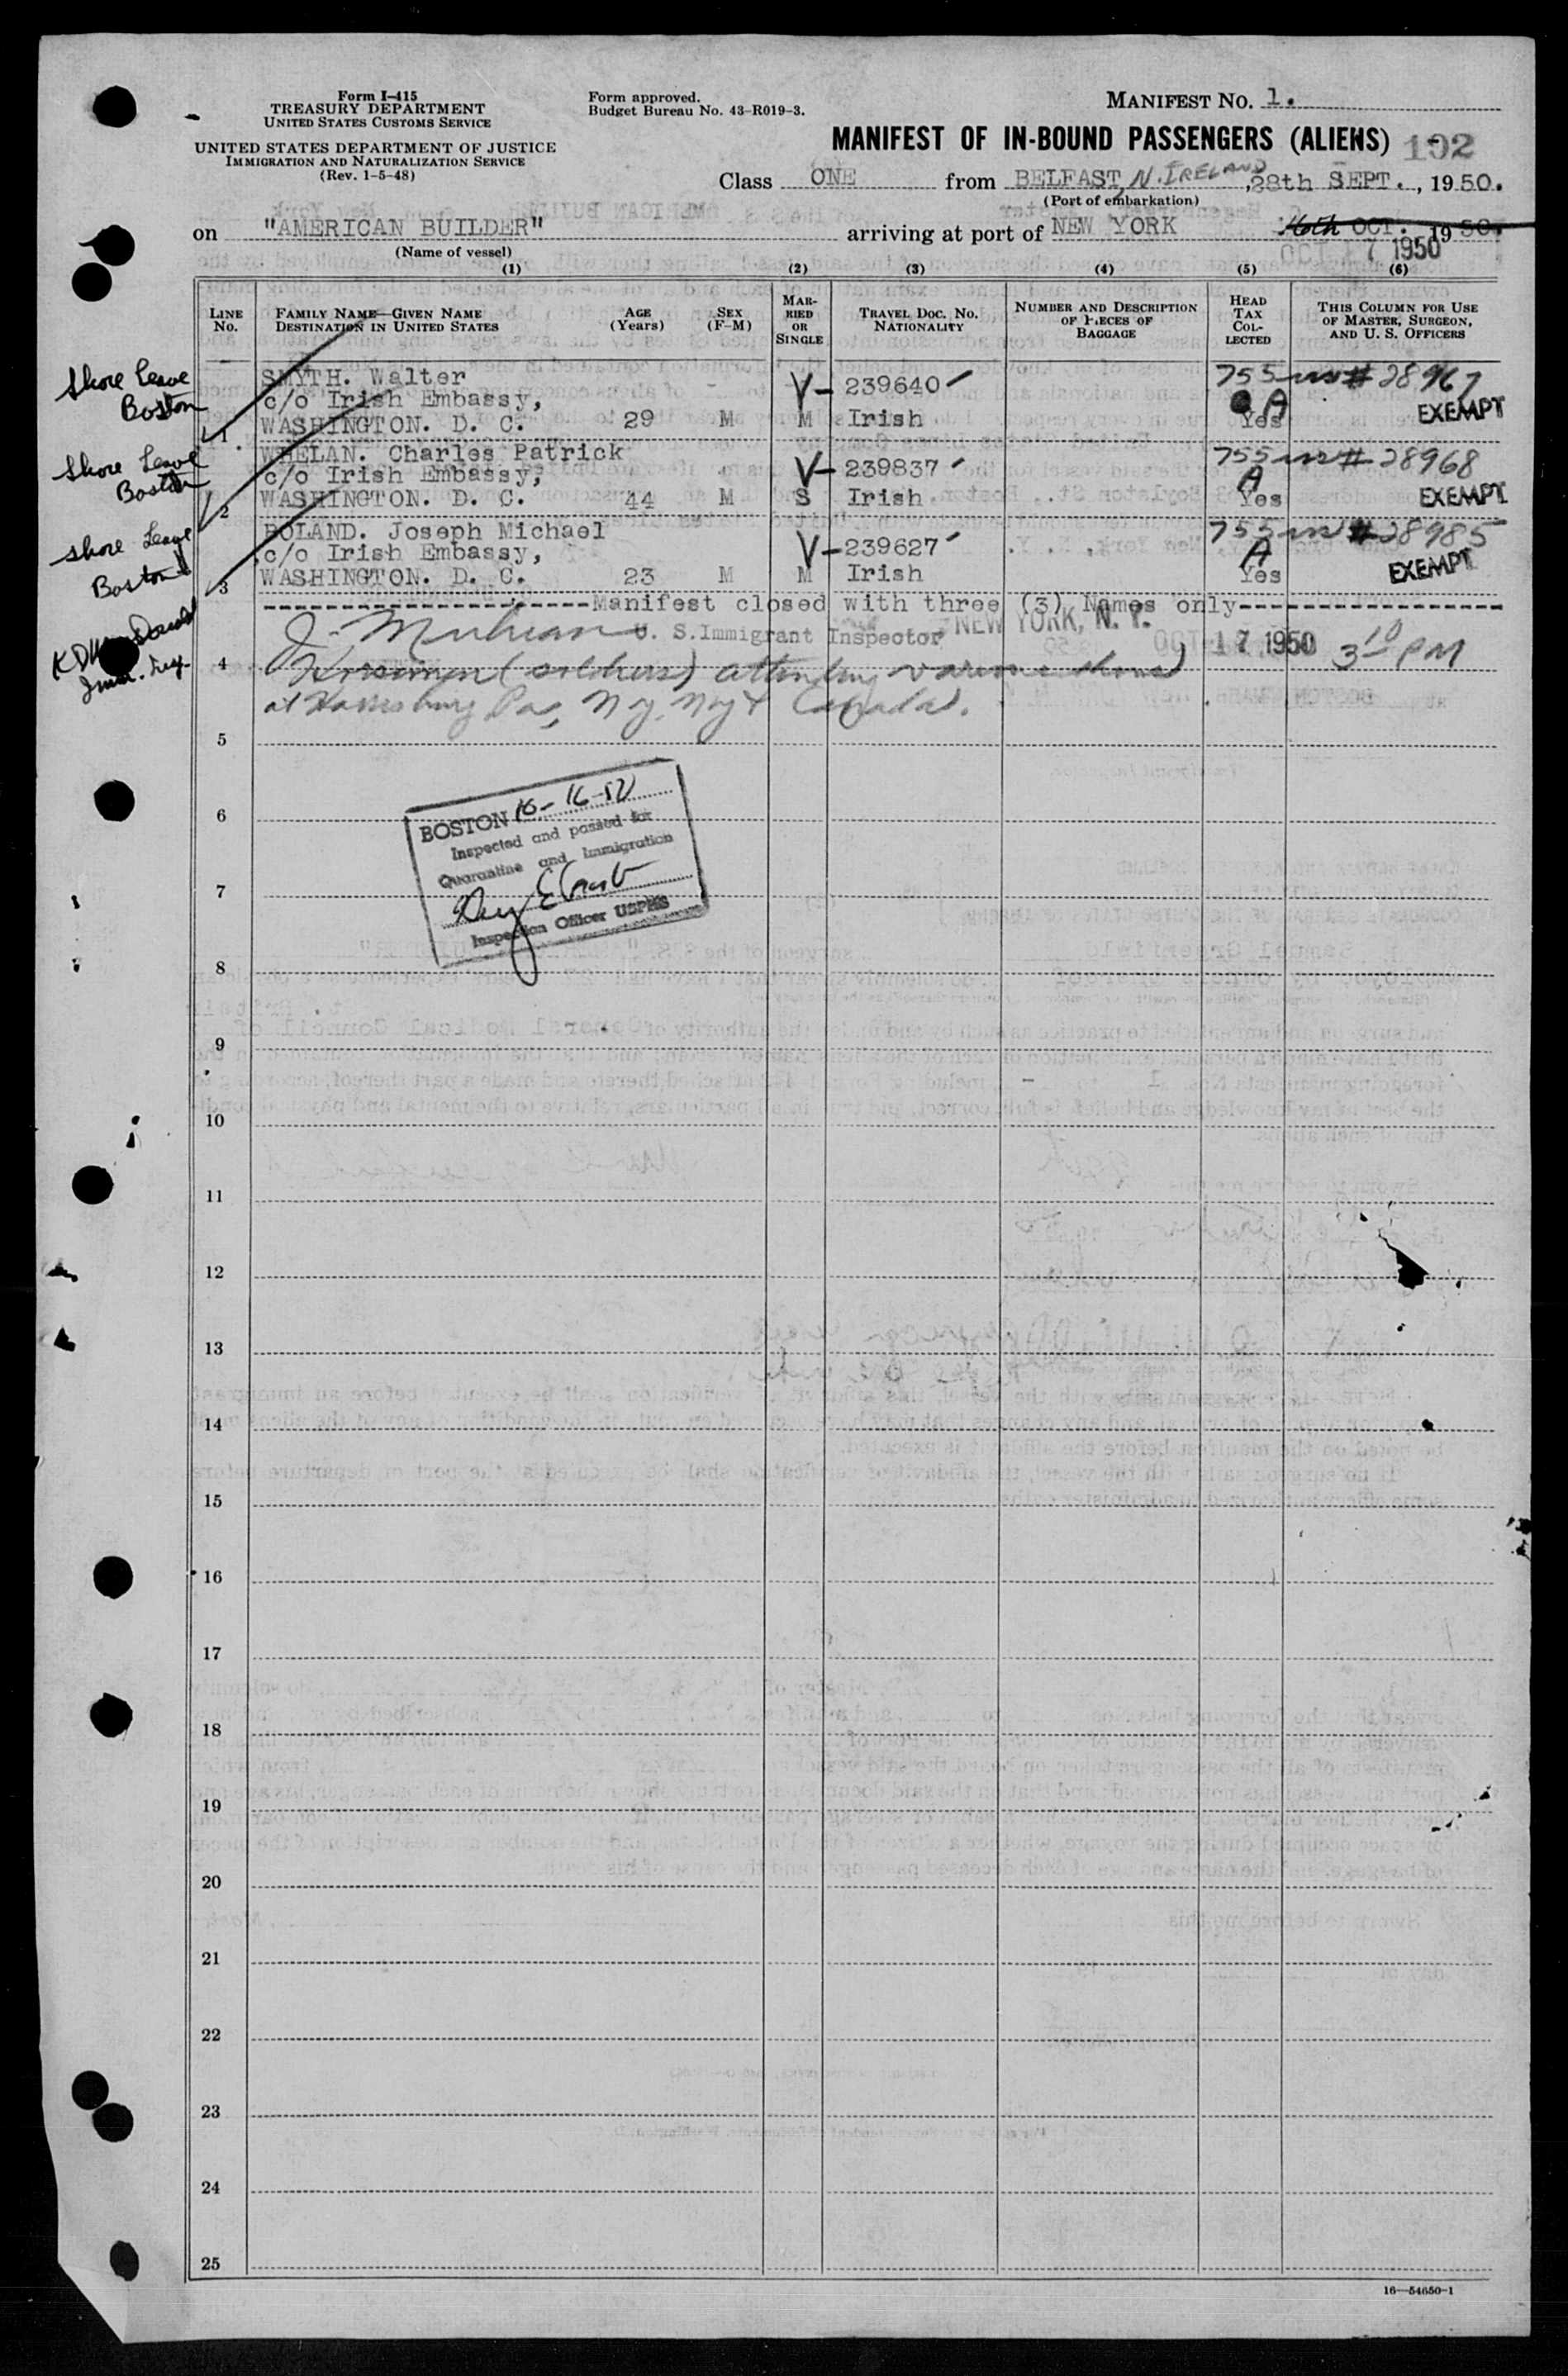 Form I-415
TREASURY DEPARTMENT
UNITED STATES CUSTOMS SERVICE
UNITED STATES DEPARTMENT OF JUSTICE
IMMIGRATION AND NATURALIZATION SERVICE
(Rev. 1-5-48)
Form approved.
Budget Bureau No. 43-R019-3.
MANIFEST NO. 1.
MANIFEST OF IN-BOUND PASSENGERS (ALIENS) 192
Class ONE from BELFAST, N. IRELAND, 28th SEPT., 1950.
(Port of embarkation)
on "AMERICAN BUILDER" arriving at port of NEW YORK 16th OCT. 1950.
OCT 17 1950
(Name of vessel)
(1) (2) (3) (4) (5) (6)
LINE No.
FAMILY NAME—GIVEN NAME
DESTINATION IN UNITED STATES
AGE (Years)
SEX (F-M)
MARRIED OR SINGLE
TRAVEL DOC. NO. NATIONALITY
NUMBER AND DESCRIPTION OF PIECES OF BAGGAGE
HEAD TAX COLLECTED
THIS COLUMN FOR USE OF MASTER, SURGEON, AND U. S. OFFICERS
Shore Leave Boston
SMYTH. Walter V- 239640 755 # 28967
c/o Irish Embassy, A
1 WASHINGTON. D. C. 29 M M Irish Yes EXEMPT
Shore Leave Boston
WHELAN. Charles Patrick V- 239837 755 # 28968
c/o Irish Embassy, A
2 WASHINGTON. D. C. 44 M S Irish Yes EXEMPT
Shore Leave Boston
BOLAND. Joseph Michael V- 239627 755 # 28985
c/o Irish Embassy, A
3 WASHINGTON. D. C. 23 M M Irish Yes EXEMPT
Manifest closed with three (3) Names only
U. S. Immigrant Inspector NEW YORK, N. Y. OCT 17 1950 3 10 PM
4 Horsemen (soldiers) attending various shows
at Harrisburg Pa, N.Y. N.Y. & Canada.
5
BOSTON 10-16-50
Inspected and passed for
Quarantine and Immigration
Inspection Officer USPHS
6
7
8
9
10
11
12
13
14
15
16
17
18
19
20
21
22
23
24
25
16—54650-1